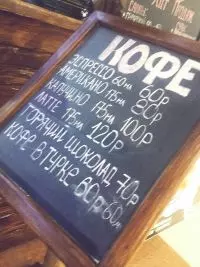 КОФЕ
ЭСПРЕССО 60МЛ 60Р
АМЕРИКАНО 175МЛ 80Р
КАПУЧИНО 175МЛ 100Р
ЛАТТЕ 175МЛ 120Р
ГОРЯЧИЙ ШОКОЛАД 70Р
КОФЕ В ТУРКЕ 60Р